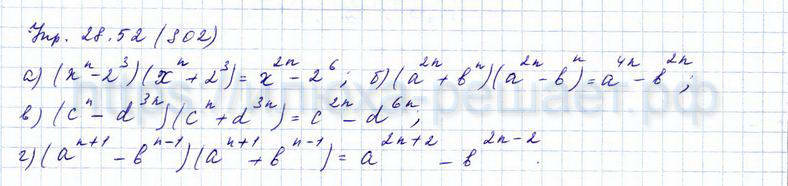 Упр. 28.52 (802)
а) (xⁿ - 2³)(xⁿ + 2³) = x²ⁿ - 2⁶; б) (a²ⁿ + bⁿ)(a²ⁿ - bⁿ) = a⁴ⁿ - b²ⁿ;
в) (cⁿ - d³ⁿ)(cⁿ + d³ⁿ) = c²ⁿ - d⁶ⁿ;
г) (aⁿ⁺¹ - bⁿ⁻¹)(aⁿ⁺¹ + bⁿ⁻¹) = a²ⁿ⁺² - b²ⁿ⁻².